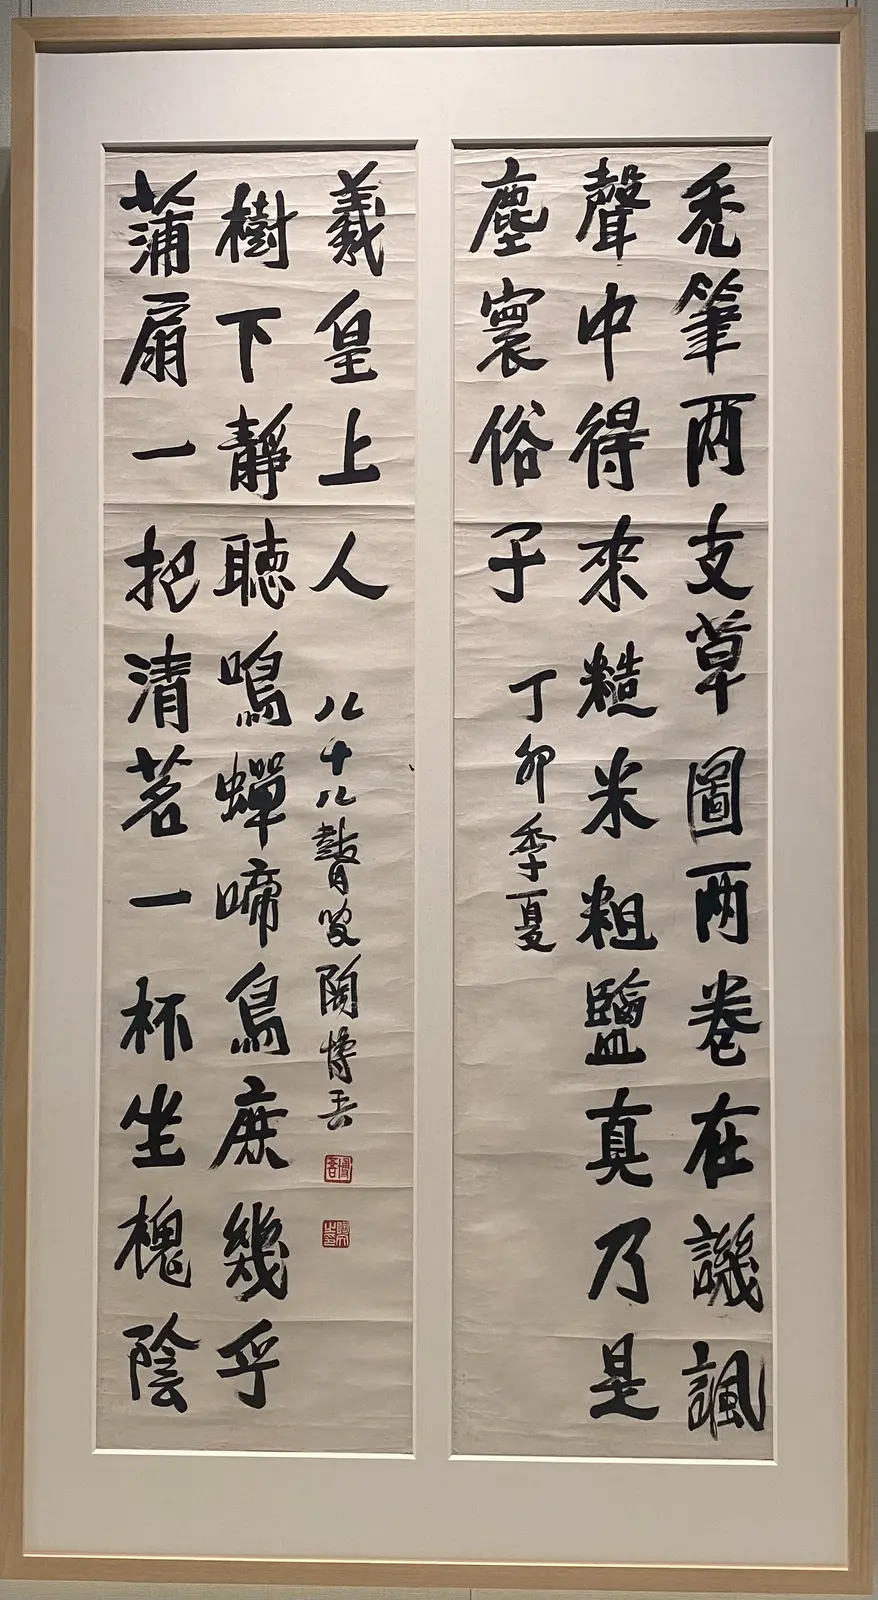 禿筆两支草圖两卷在譏諷
聲中得来糙米粗鹽真乃是
塵寰俗子
丁卯季夏
蒲扇一把清茗一杯坐槐陰
樹下靜聽鳴蟬啼鳥庶幾乎
羲皇上人
八十八瞽叟陶博吾
博吾